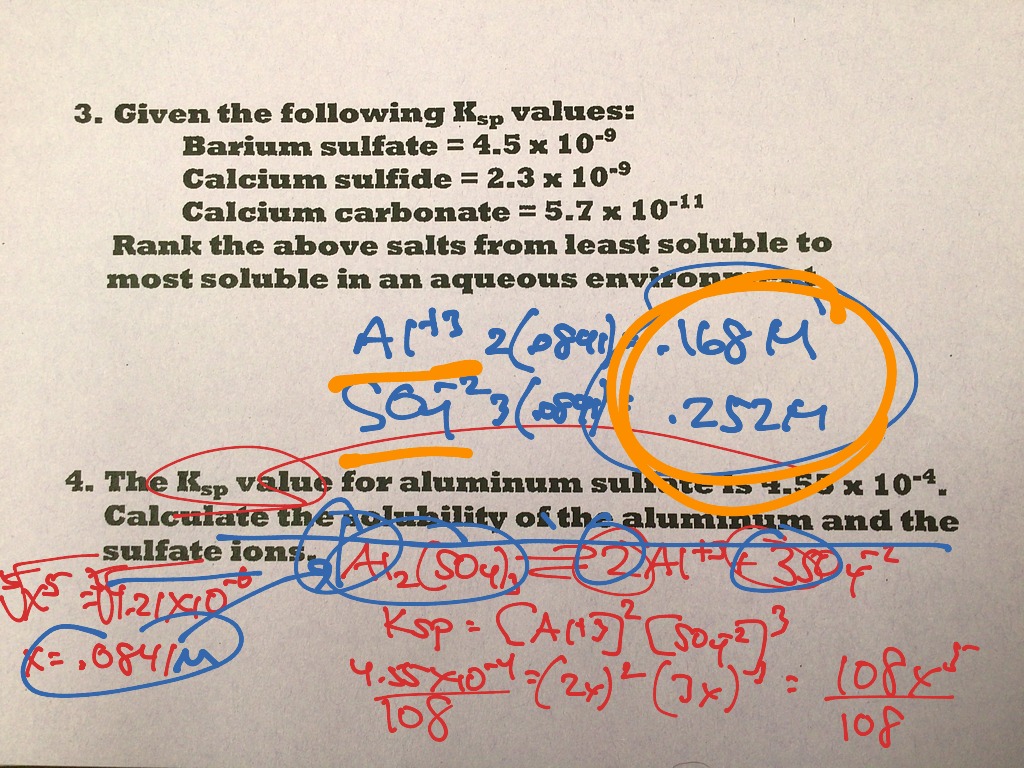 3. Given the following Ksp values:
Barium sulfate = 4.5 x 10⁻⁹
Calcium sulfide = 2.3 x 10⁻⁹
Calcium carbonate = 5.7 x 10⁻¹¹
Rank the above salts from least soluble to
most soluble in an aqueous environment
Al⁺³ 2(.0841)= .168 M
SO₄⁻² 3(.0841)= .252 M
4. The Ksp value for aluminum sulfate is 4.55 x 10⁻⁴.
Calculate the solubility of the aluminum and the
sulfate ions.
Al₂(SO₄)₃ ⇌ 2Al⁺³ + 3SO₄⁻²
⁵√x⁵ = ⁵√4.21x10⁻⁶
Ksp = [Al⁺³]² [SO₄⁻²]³
x = .0841 M
4.55x10⁻⁴ = (2x)² (3x)³ = 108x⁵
108 108